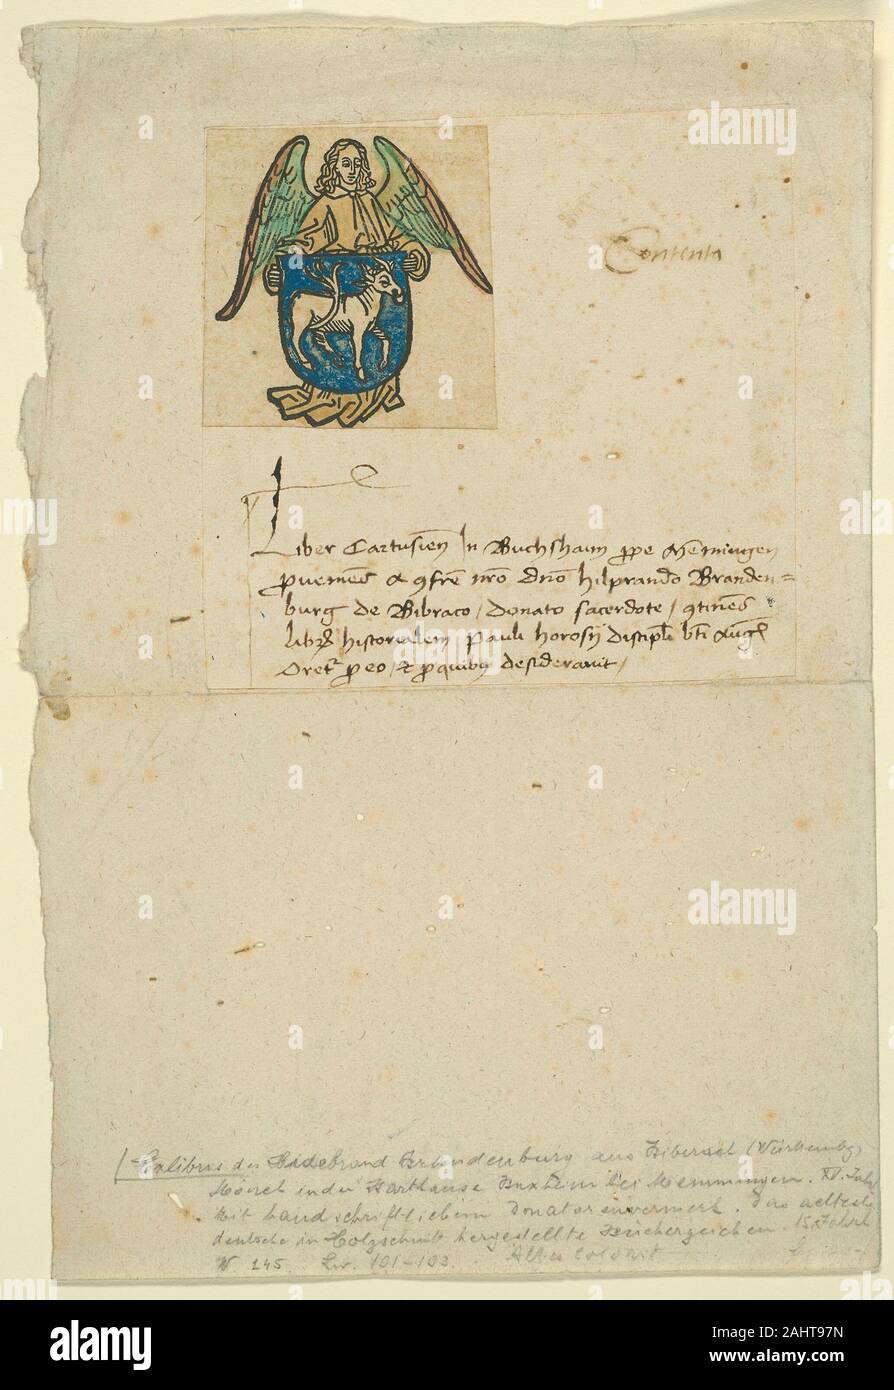 Contenta
Liber Cartusień In Buchshaim ꝓpe Mēmingen
ꝓueniēs a ꝯfrē nrō dnō hilprando Branden=
burg de Bibraco / donato sacerdote / ꝯtinēs
historialem Pauli horosij discipli bti Aug
Oret ꝓ eo / & ꝓ quibus desiderauit /
Exlibris des Hildebrand Brandenburg aus Biberach (Württembg)
Mönch in der Karthause Buxheim bei Memmingen. XV. Jahr
Mit handschriftlichem Donatorenvermerk. Das aelteste
deutsche in Holzschnitt hergestellte Bücherzeichen. 15. Jahrh
W. 145 Lw. 101-103. Altes Colorit
alamy
Image ID: 2AHT97N
www.alamy.com